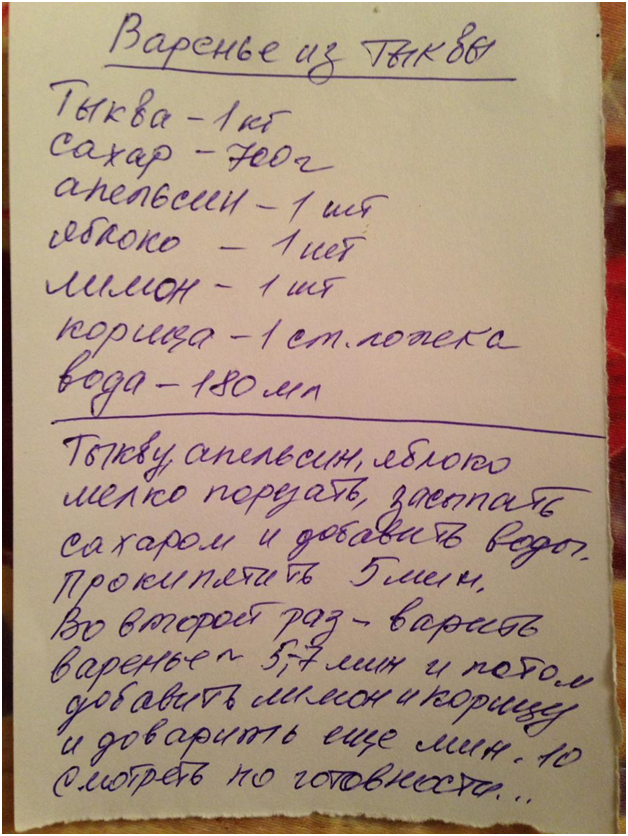 Варенье из тыквы
Тыква - 1 кг
сахар - 700 г
апельсин - 1 шт
яблоко - 1 шт
лимон - 1 шт
корица - 1 ст. ложека
вода - 180 мл
Тыкву, апельсин, яблоко
мелко порезать, засыпать
сахаром и добавить воды.
Прокипятить 5 мин.
Во второй раз - варить
варенье ~ 5,-7 мин и потом
добавить лимон и корицу
и доварить еще мин. 10
смотреть по готовности...